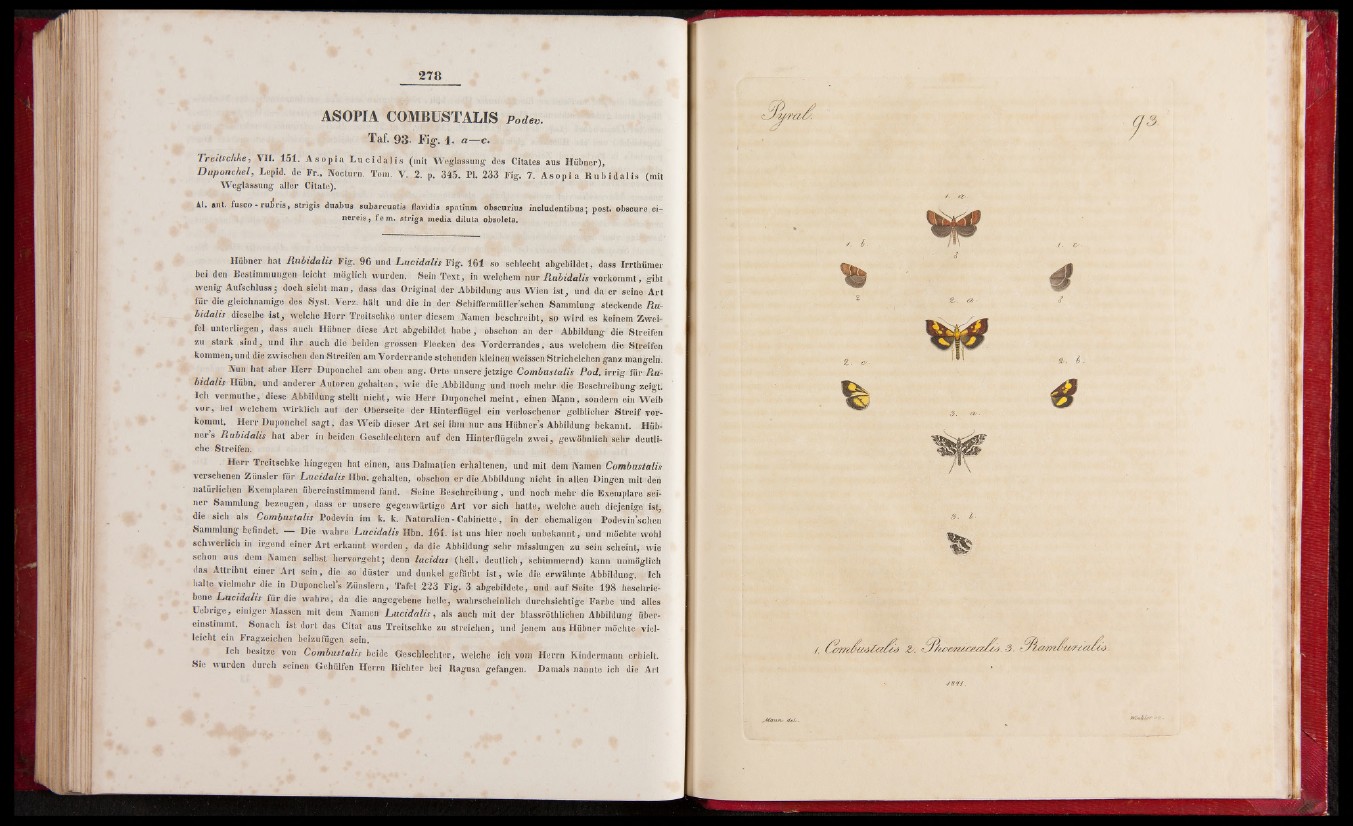 278
ASOPIA COMBUSTALIS Podev.
Taf. 93. Fig. 1. a—c.
Treitschke, VII. 151. Asopia Lucidalis (mit Weglassung des Citates aus Hübner),
Duponchel, Lepid. de Fr., Nocturn. Tom. V. 2. p. 345. Pl. 233 Fig. 7. Asopia Rubidalis (mit
Weglassung aller Citate).
Al. ant. fusco-rubris, strigis duabus subarcuatis flavidis spatium obscurius includentibus; post. obscure ci-
nereis, fem. striga media diluta obsoleta.
Hübner hat Rubidalis Fig. 96 und Lucidalis Fig. 161 so schlecht abgebildet, dass Irrthümer
bei den Bestimmungen leicht möglich wurden. Sein Text, in welchem nur Rubidalis vorkommt, gibt
wenig Aufschluss; doch sieht man, dass das Original der Abbildung aus Wien ist, und da er seine Art
für die gleichnamige des Syst. Verz. hält und die in der Schiffermüller'schen Sammlung steckende Ru-
bidalis dieselbe ist, welche Herr Treitschke unter diesem Namen beschreibt, so wird es keinem Zwei-
fel unterliegen, dass auch Hübner diese Art abgebildet habe, obschon an der Abbildung die Streifen
zu stark sind, und ihr auch die beiden grossen Flecken des Vorderrandes, aus welchem die Streifen
kommen, und die zwischen den Streifen am Vorderrande stehenden kleinen weissen Strichelchen ganz mangeln.
Nun hat aber Herr Duponchel am oben ang. Orte unsere jetzige Combustalis Pod. irrig für Ru-
bidalis Hübn. und anderer Autoren gehalten, wie die Abbildung und noch mehr die Beschreibung zeigt.
Ich vermuthe, diese Abbildung stellt nicht, wie Herr Duponchel meint, einen Mann, sondern ein Weib
vor, bei welchem wirklich auf der Oberseite der Hinterflügel ein verloschener gelblicher Streif vor-
kommt. Herr Duponchel sagt, das Weib dieser Art sei ihm nur aus Hübner's Abbildung bekannt. Hüb-
ner's Rubidalis hat aber in beiden Geschlechtern auf den Hinterflügeln zwei, gewöhnlich sehr deutli-
che Streifen.
Herr Treitschke hingegen hat einen, aus Dalmatien erhaltenen, und mit dem Namen Combustalis
versehenen Zünsler für Lucidalis Hbn. gehalten, obschon er die Abbildung nicht in allen Dingen mit den
natürlichen Exemplaren übereinstimmend fand. Seine Beschreibung, und noch mehr die Exemplare sei-
ner Sammlung bezeugen, dass er unsere gegenwärtige Art vor sich hatte, welche auch diejenige ist,
die sich als Combustalis Podevin im k. k. Naturalien-Cabinette, in der ehemaligen Podevin'schen
Sammlung befindet. — Die wahre Lucidalis Hbn. 161. ist uns hier noch unbekannt, und möchte wohl
schwerlich in irgend einer Art erkannt werden, da die Abbildung sehr misslungen zu sein scheint, wie
schon aus dem Namen selbst hervorgeht; denn lucidus (hell, deutlich, schimmernd) kann unmöglich
das Attribut einer Art sein, die so düster und dunkel gefärbt ist, wie die erwähnte Abbildung. Ich
halte vielmehr die in Duponchel's Zünslern, Tafel 223 Fig. 3 abgebildete, und auf Seite 198 beschrie-
bene Lucidalis für die wahre, da die angegebene helle, wahrscheinlich durchsichtige Farbe und alles
Uebrige, einiger Massen mit dem Namen Lucidalis, als auch mit der blassröthlichen Abbildung über-
einstimmt. Sonach ist dort das Citat aus Treitschke zu streichen, und jenem aus Hübner möchte viel-
leicht ein Fragzeichen beizufügen sein.
Ich besitze von Combustalis beide Geschlechter, welche ich vom Herrn Kindermann erhielt.
Sie wurden durch seinen Gehülfen Herrn Richter bei Ragusa gefangen. Damals nannte ich die Art
Pyral.
93.
1. a.
1. b
1. c
♂
♀
♂
2. a
2. c
2. b.
3. a
3. b
1. Combustalis. 2. Phoenicealis. 3. Ramburialis.
1841.
Mann del.